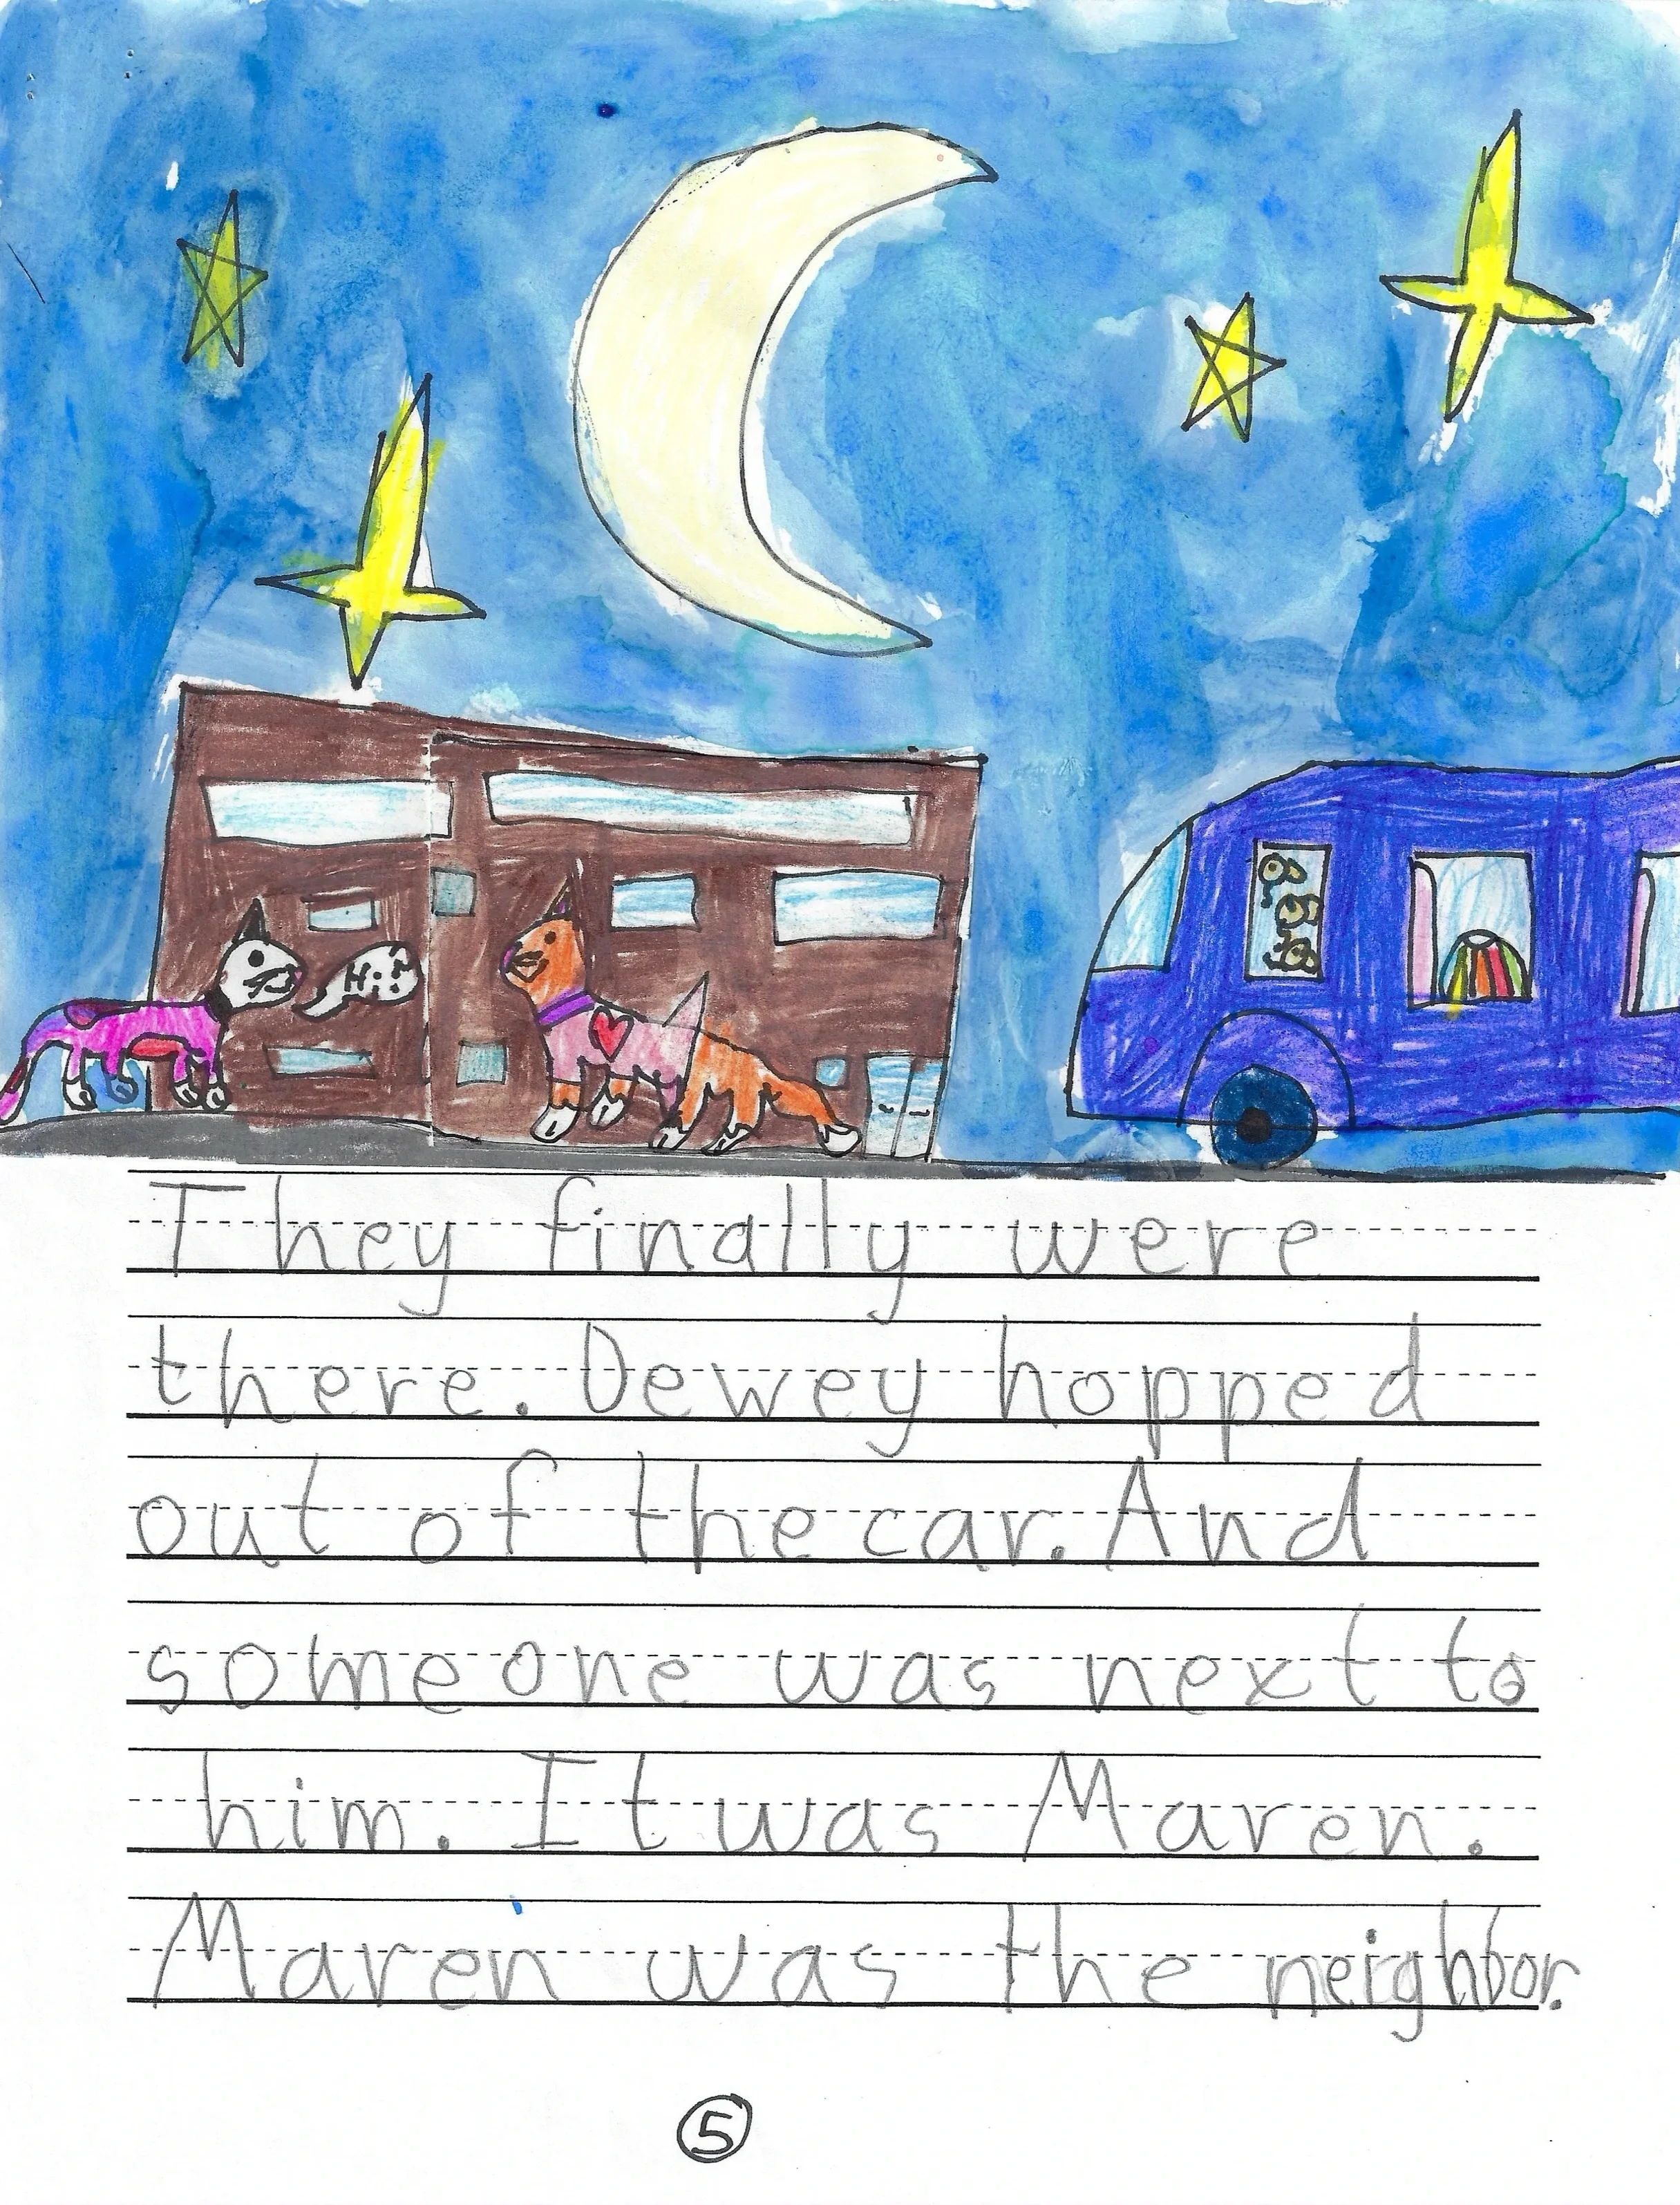 Hi!
They finally were
there. Dewey hopped
out of the car. And
someone was next to
him. It was Maren.
Maren was the neighbor.
5